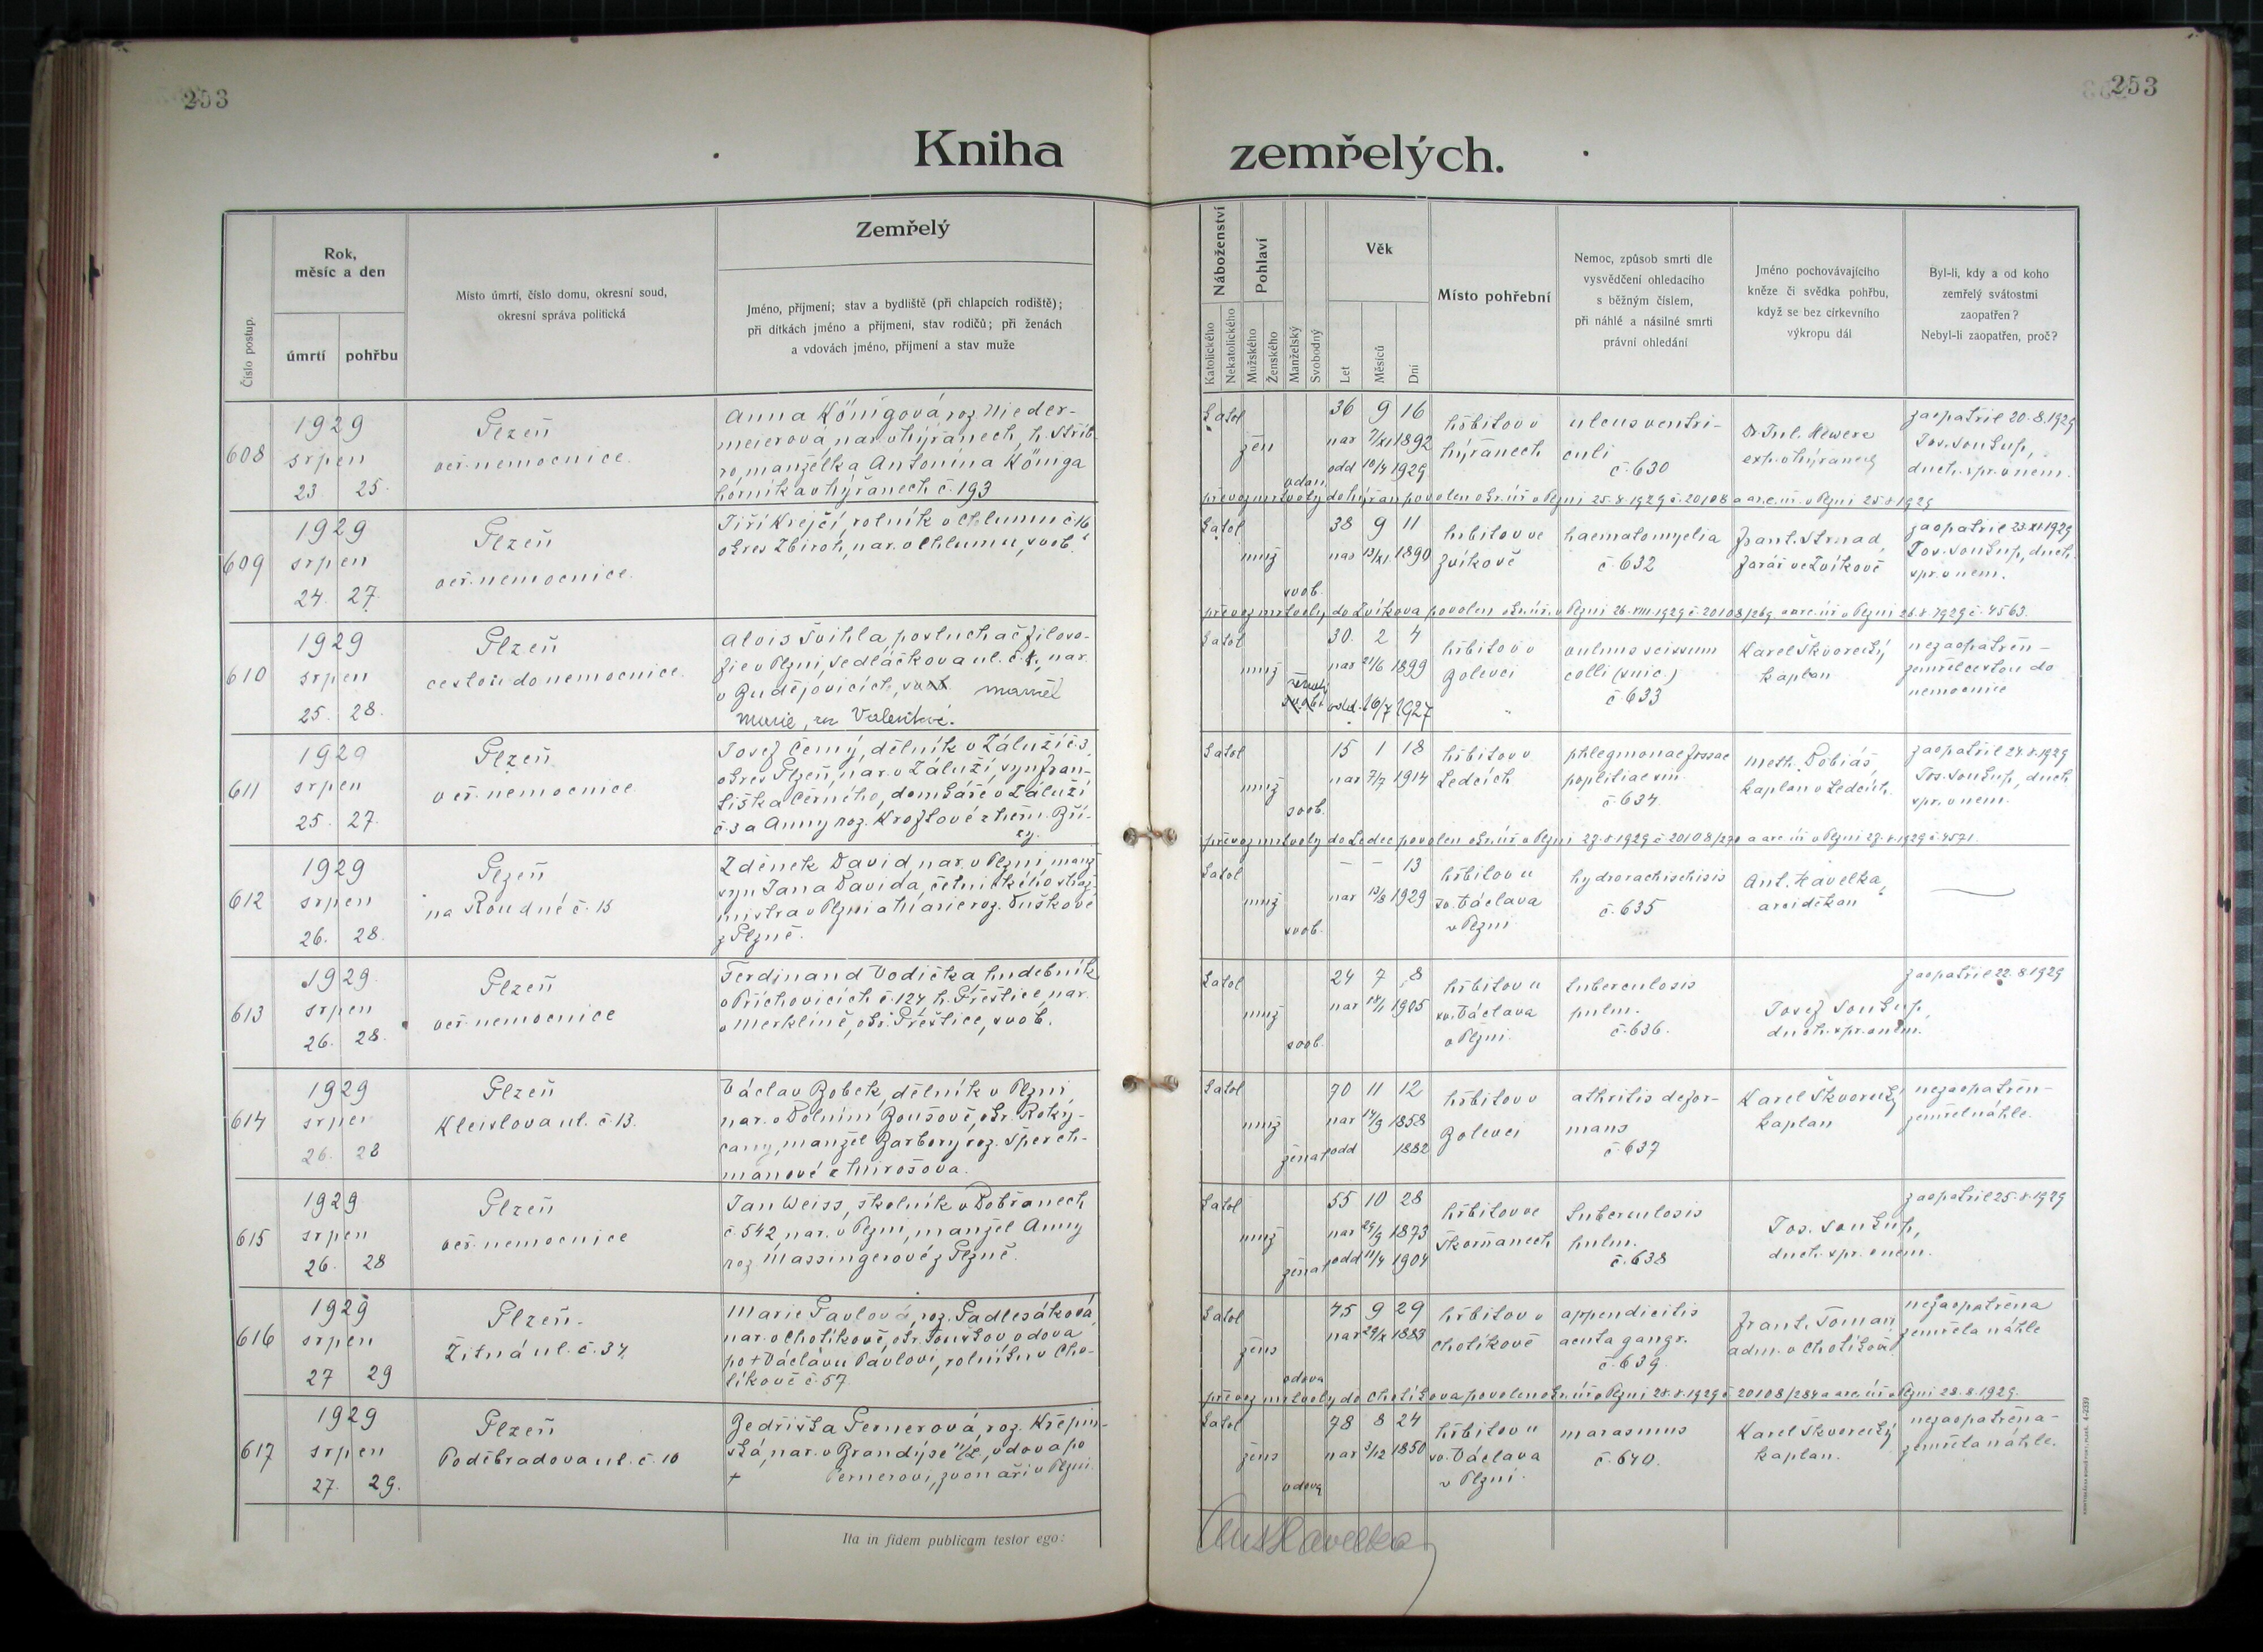 253
253
Kniha zemřelých.
Číslo postup.
Rok,
měsíc a den
úmrtí
pohřbu
Místo úmrtí, číslo domu, okresní soud,
okresní správa politická
Zemřelý
Jméno, příjmení; stav a bydliště (při chlapcích rodiště);
při dítkách jméno a příjmení, stav rodičů; při ženách
a vdovách jméno, příjmení a stav muže
Náboženství
Katolického
Nekatolického
Pohlaví
Mužského
Ženského
Manželský
Svobodný
Věk
Let
Měsíců
Dní
Místo pohřební
Nemoc, způsob smrti dle
vysvědčení ohledacího
s běžným číslem,
při náhlé a násilné smrti
právní ohledání
Jméno pochovávajícího
kněze či svědka pohřbu,
když se bez církevního
výkropu dál
Byl-li, kdy a od koho
zemřelý svátostmi
zaopatřen?
Nebyl-li zaopatřen, proč?
608
1929
srpen
23 25.
Plzeň
veř. nemocnice.
Anna Königová roz. Nieder-
meierová, nar. v Nýřanech, h. Stříb-
ro, manželka Antonína Königa
horníka v Nýřanech č. 193
katol
žen
vdan.
36 9 16
nar 7/XI 1892
odd 10/4 1929
hřbitov v
Nýřanech
ulcus ventri-
culi
č. 630
exp. v Nýřanech
zaopatřil 20.8.1929
Jos. Soukup,
duch. spr. v nem.
převoz mrtvoly do Nýřan povolen okr. úř. v Plzni 25.8.1929 č. 20108 a arc. úř. v Plzni 25.8.1929
609
1929
srpen
24. 27.
Plzeň
veř. nemocnice.
Jiří Krejčí, rolník v Chlumu č. 16
okres Zbiroh, nar. v Chlumu, svob.
katol
muž
svob.
38 9 11
nar 13/XI. 1890
hřbitov ve
Zvíkově
haematomyelia
č. 632
Frant. Strnad,
farář ve Zvíkově
zaopatřil 23.XI.1929
Jos. Soukup, duch.
spr. v nem.
převoz mrtvoly do Zvíkova povolen okr. úř. v Plzni 26.VIII.1929 č. 20108/269 a arc. úř. v Plzni 26.8.1929 č. 4563.
610
1929
srpen
25. 28.
Plzeň
cestou do nemocnice.
Alois Švihla, posluchač filoso-
fie v Plzni, Sedláčkova ul. č. 1, nar.
v Budějovicích, svob. manžel
Marie, roz. Valentové.
katol
muž
ženatý
svob.
30. 2 4
nar 21/6 1899
odd. 16/7 1927
hřbitov v
Bolevci
vulnus scissum
colli (suic.)
č. 633
Karel Škvorecký
kaplan
nezaopatřen -
zemřel cestou do
nemocnice
611
1929
srpen
25. 27.
Plzeň
veř. nemocnice
Josef Černý, dělník v Záluží č. 3,
okres Plzeň, nar. v Záluží, syn Fran-
tiška Černého, domkáře v Záluží
č. 3 a Anny roz. Kroftové z Něm. Bří-
zy.
katol
muž
svob.
15 1 18
nar 7/7 1914
hřbitov v
Ledcích
phlegmonae fossae
popliliae sin.
č. 634.
Meth. Tobiáš,
kaplan v Ledcích.
zaopatřil 24.8.1929
Jos. Soukup, duch
spr. v nem.
převoz mrtvoly do Ledec povolen okr. úř. v Plzni 27.8.1929 č. 20108/270 a arc. úř. v Plzni 27.8.1929 č. 4571.
612
1929
srpen
26. 28.
Plzeň
na Roudné č. 15
Zdeněk David, nar. v Plzni, manž.
syn Jana Davida, četnického straž-
mistra v Plzni a Marie roz. Tuškové
z Plzně.
katol
muž
svob.
- - 13
nar 13/8 1929
hřbitov u
sv. Václava
v Plzni
hydrorachischisis
č. 635
Ant. Havelka,
arciděkan
613
1929
srpen
26. 28.
Plzeň
veř. nemocnice
Ferdinand Vodička hudebník
v Příchovicích č. 124 h. Přeštice, nar.
v Merklíně, okr. Přeštice, svob.
katol
muž
svob.
24 7 8
nar 18/1 1905
hřbitov u
sv. Václava
v Plzni.
tuberculosis
pulm.
č. 636.
Josef Soukup,
duch. spr. v nem.
zaopatřil 22.8.1929
614
1929
srpen
26. 28
Plzeň
Kleislova ul. č. 13.
Václav Bobek, dělník v Plzni,
nar. v Dolním Boušově, okr. Roky-
cany, manžel Barbory roz. Sperch-
manové z Mirošova.
katol
muž
ženat
70 11 12
nar 14/9 1858
odd 1882
hřbitov v
Bolevci
athritis defor-
mans
č. 637
Karel Škvorecký
kaplan
nezaopatřen -
zemřel náhle.
615
1929
srpen
26. 28
Plzeň
veř. nemocnice
Jan Weiss, školník v Dobřanech
č. 542, nar. v Plzni, manžel Anny
roz. Massingerové z Plzně.
katol
muž
ženat
55 10 28
nar 29/9 1873
odd 11/4 1904
hřbitov ve
Skvrňanech
tuberculosis
pulm.
č. 638
Jos. Soukup,
duch. spr. v nem.
zaopatřil 25.8.1929
616
1929
srpen
27 29
Plzeň.
Žitná ul. č. 34.
Marie Pavlová, roz. Padlesáková
nar. v Chotíkově, okr. Touškov, vdova
po + Václavu Pavlovi, rolníku v Cho-
tíkově č. 57.
katol
žens
vdova
45 9 29
nar 29/X 1883
hřbitov v
Chotíkově
appendicitis
acuta gangr.
č. 639.
Frant. Toman
adm. v Chotíkově
nezaopatřena
zemřela náhle
převoz mrtvoly do Chotíkova povolen okr. úř. v Plzni 28.8.1929 č. 20108/284 a arc. úř. v Plzni 28.8.1929.
617
1929
srpen
27. 29.
Plzeň
Poděbradova ul. č. 10
Bedřiška Pernerová, roz. Křepin-
ská, nar. v Brandýse n/L, vdova po
+ Pernerovi, zvonaři v Plzni.
katol
žens
vdova
78 8 24
nar 3/12 1850
hřbitov u
sv. Václava
v Plzni.
marasmus
č. 640.
Karel Škvorecký
kaplan.
nezaopatřena -
zemřela náhle.
Ita in fidem publicam testor ego:
Ant Havelka